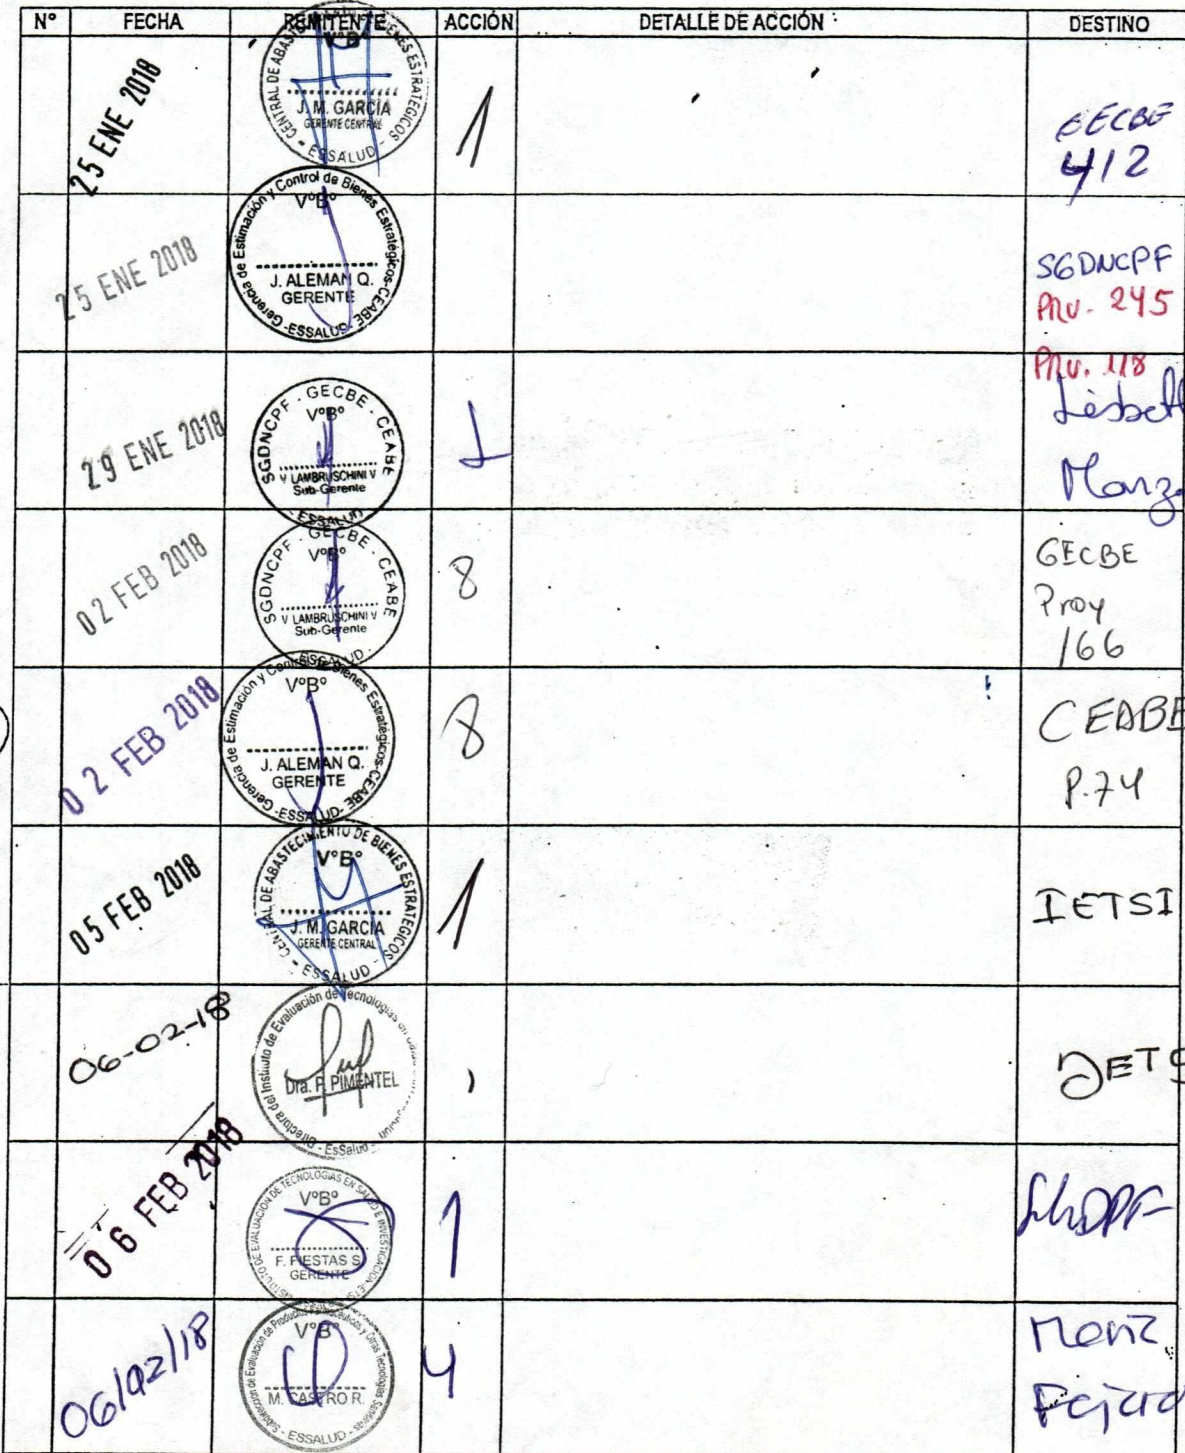 N° FECHA REMITENTE ACCIÓN DETALLE DE ACCIÓN DESTINO
25 ENE 2018
CENTRAL DE ABAST BIENES ESTRATEGICOS
V°B°
J. M. GARCÍA
GERENTE CENTRAL
ESSALUD
1
412
25 ENE 2018
Gerencia de Estimación y Control de Bienes Estratégicos-CEABE
V°B°
J. ALEMAN Q.
GERENTE
-ESSALUD-
SGDNCPF
PRV. 245
29 ENE 2018
SGDNCPF - GECBE - CEABE
V°B°
V LAMBRUSCHINI V
Sub-Gerente
ESSALUD
1
PRV. 118
02 FEB 2018
SGDNCPF - GECBE - CEABE
V°B°
V LAMBRUSCHINI V
Sub-Gerente
ESSALUD
8
GECBE
Proy
166
02 FEB 2018
Gerencia de Estimación y Control de Bienes Estratégicos-CEABE
V°B°
J. ALEMAN Q.
GERENTE
-ESSALUD-
8
CEABE
P.74
05 FEB 2018
CENTRAL DE ABASTECIMIENTO DE BIENES ESTRATEGICOS
V°B°
J. M. GARCÍA
GERENTE CENTRAL
- ESSALUD -
1
IETSI
06-02-18
Directora del Instituto de Evaluación de Tecnologías en
Dra. P. PIMENTEL
- EsSalud -
DETS
06 FEB 2018
INSTITUTO DE EVALUACIÓN DE TECNOLOGIAS EN SALUD E INVESTIGACIÓN-IETSI
V°B°
F. FIESTAS S.
GERENTE
1
06/02/18
Subdirección de Evaluación de Productos Farmacéuticos y Otras Tecnologías Sanitarias
V°B°
M. CASTRO R.
- ESSALUD -
4